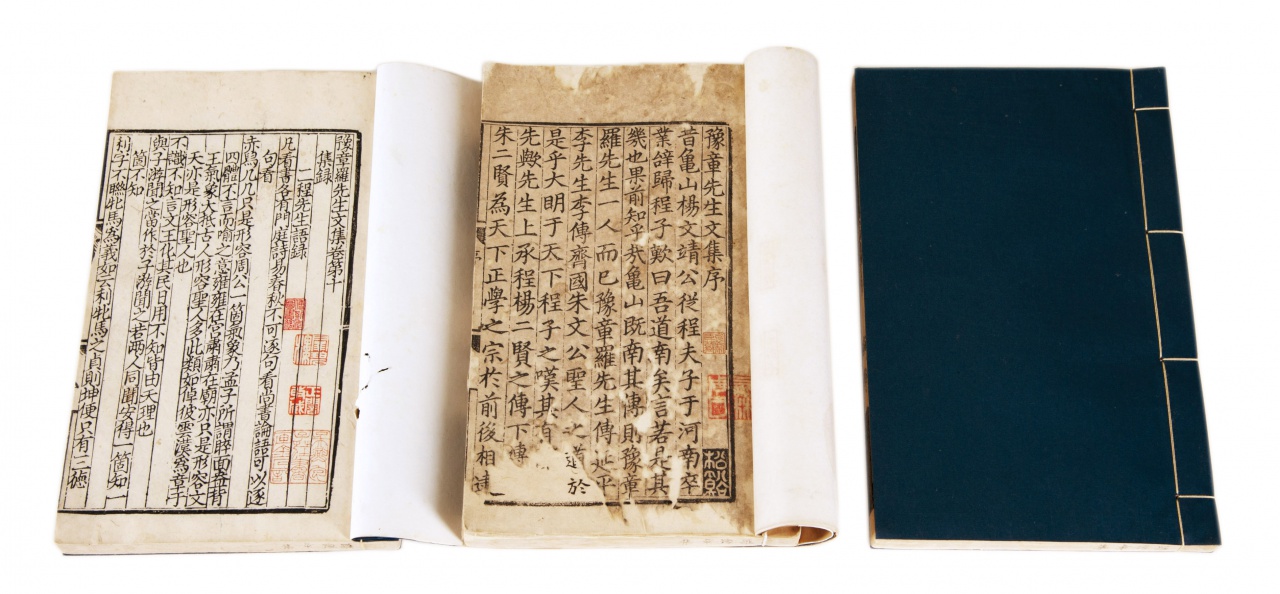 豫章先生文集序
昔亀山楊文靖公従程夫子于河南卒
業辝歸程子歎曰吾道南矣言若是其
幾也果前知乎㢤亀山既南其傳則豫章
羅先生一人而已豫章羅先生傳延平
李先生李傳齊國朱文公聖人之道於
是乎大明于天下程子之嘆其
先歟先生上承程楊二賢之傳下傳
朱二賢為天下正學之宗於前後相
豫章羅先生文集卷第十
集録
二程先生語録
凡看書各有門庭詩易春秋不可逐句看尚書論語可以逐
句看
赤舄几几只是形容周公一箇氣象乃孟子所謂睟面盎背
四體不言而喻之意雍雍在宮肅肅在廟亦只是形容文
王氣象大抵古人形容聖人多此類如倬彼雲漢為章于
天亦是形容聖人也
不識不知言文王化其民日用不知皆由天理也
與子游聞之當作於子游聞之若兩人同聞安得一箇知一
箇不知
利子不牝馬為義如云利牝馬之貞則坤便只有三德